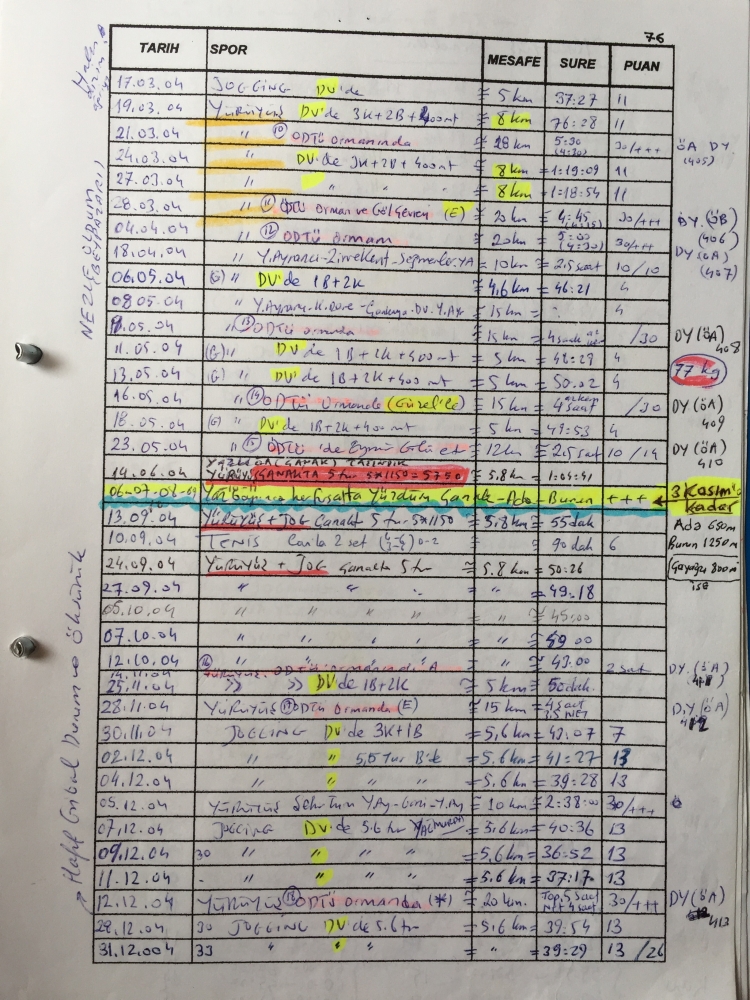 76
TARIH SPOR MESAFE SURE PUAN
17.03.04 JOGGING DV'de ≅ 5 km 37:27 11
19.03.04 YÜRÜYÜŞ DV'de 3K+2B+400mt ≅ 8km 76:28 11
21.03.04 " ⑩ ODTÜ Ormanında ≅ 28 km 5:30 (4:30) 30/+++ ÖA DY (405)
24.03.04 " DV'de 3K+2B+400mt ≅ 8km ≅ 1:19:09 11
27.03.04 " " " " ≅ 8km ≅ 1:18:54 11
28.03.04 " ⑪ ODTÜ Orman ve Göl Çevresi (E) ≅ 20 km ≅ 4:45 30/+++ DY.(ÖB) (406)
04.04.04 " ⑫ ODTÜ Ormanı ≅ 20km ≅ 5:00 (4:30) 30/+++ DY(ÖA) (407)
18.04.04 " Y.Ayrancı-Zirvekent-Segmenler-YA ≅ 10km ≅ 2,5 saat 10/10
06.05.04 (G) " DV'de 1B+2K ≅ 4,6 km ≅ 46:21 4
08.05.04 " Y.Ayrancı-K.Dere- DV.Y.Ayr ≅ 15km 4
9.05.04 " ⑬ ODTÜ Ormanda ≅ 15 km ≅ 4 saat /30 DY(ÖA) 408
11.05.04 (G) " DV de 1B+2K+400 mt ≅ 5 km ≅ 48:29 4
13.05.04 (G) " DV'de 1B+2K+400 mt ≅ 5 km ≅ 50.02 4 77 kg
16.05.04 " ⑭ ODTÜ Ormanda (Güzel'le) ≅ 15 km ≅ 4 saat /30 DY(ÖA) 409
18.05.04 (G) " DV'de 1B+2K+400 mt ≅ 5 km ≅ 49:53 4
23.05.04 " ⑮ ODTÜ 'de Eymir Gölü et ≅ 12km ≅ 2.5 saat 10/14 DY(ÖA) 410
14.06.04 YÜRÜYÜŞ ÇANAKTA 5 tur 5x1150=5750 ≅ 5.8km ≅ 1:04:41
06-07-08-09 Yaz boyunca her fırsatta Yüzdüm Çanak-Ada-Burun +++ 3 Kasım'a kadar
13.09.04 YÜRÜYÜŞ+JOG Çanakta 5 tur-5x1150 ≅ 5,8km ≅ 55dak Ada 650m
10.09.04 TENIS 2 set 0-2 90 dak 6 Burun 1250m
24.09.04 YÜRÜYÜŞ + JOG Çanakta 5 tur ≅ 5.8 km ≅ 50:26 800m ise
27.09.04 " " " ≅ " ≅ 49:18
05.10.04 " " " " ≅ " ≅ 45:00
07.10.04 " " " " ≅ " ≅ 59:00
12.10.04 " " " " ≅ " ≅ 43:00
14.11.04 YÜRÜYÜŞ ⑯ ODTÜ Ormanında 2 saat DY.(ÖA) 411
25.11.04 " " DV'de 1B+2K ≅ 5 km ≅ 50dak.
28.11.04 YÜRÜYÜŞ ⑰ ODTÜ Ormanda (E) ≅ 15 km ≅ 4 saat 3,5 NET DY(ÖA) 412
30.11.04 JOGGING DV'de 3K+1B ≅ 5,6 km ≅ 43:07 7
02.12.04 " " 5,5 Tur B'de ≅ 5.6 km ≅ 41:27 13
04.12.04 " " " " ≅ 5,6 km ≅ 39:28 13
05.12.04 YÜRÜYÜŞ Şehir Turu Y.Ay- -Y.Ay ≅ 10 km ≅ 2:38:00 30/+++
07.12.04 JOGGING DV'de 5.6 tur YAĞMURDA ≅ 5.6 km ≅ 40:36 13
09.12.04 30 " " " " ≅ 5,6 km ≅ 36:52 13
11.12.04 - " " " " ≅ 5,6 km ≅ 37:17 13
12.12.04 YÜRÜYÜŞ ⑱ ODTÜ Ormanda (*) ≅ 20 km. Top.5 saat Net 4 saat 30/+++ DY(ÖA) 413
29.12.04 30 JOGGING DV'de 5.6 tur ≅ 5,6 km ≅ 39:54 13
31.12.004 33 " " " ≅ " ≅ 39:29 13 /26
NEZLE OLDUM (BEYPAZARI)
Hafif Gribal Durum ve Öksürük